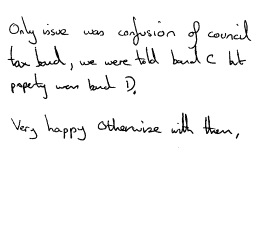 Only issue was confusion of council
tax band, we were told band C but
property was band D.
Very happy otherwise with them,